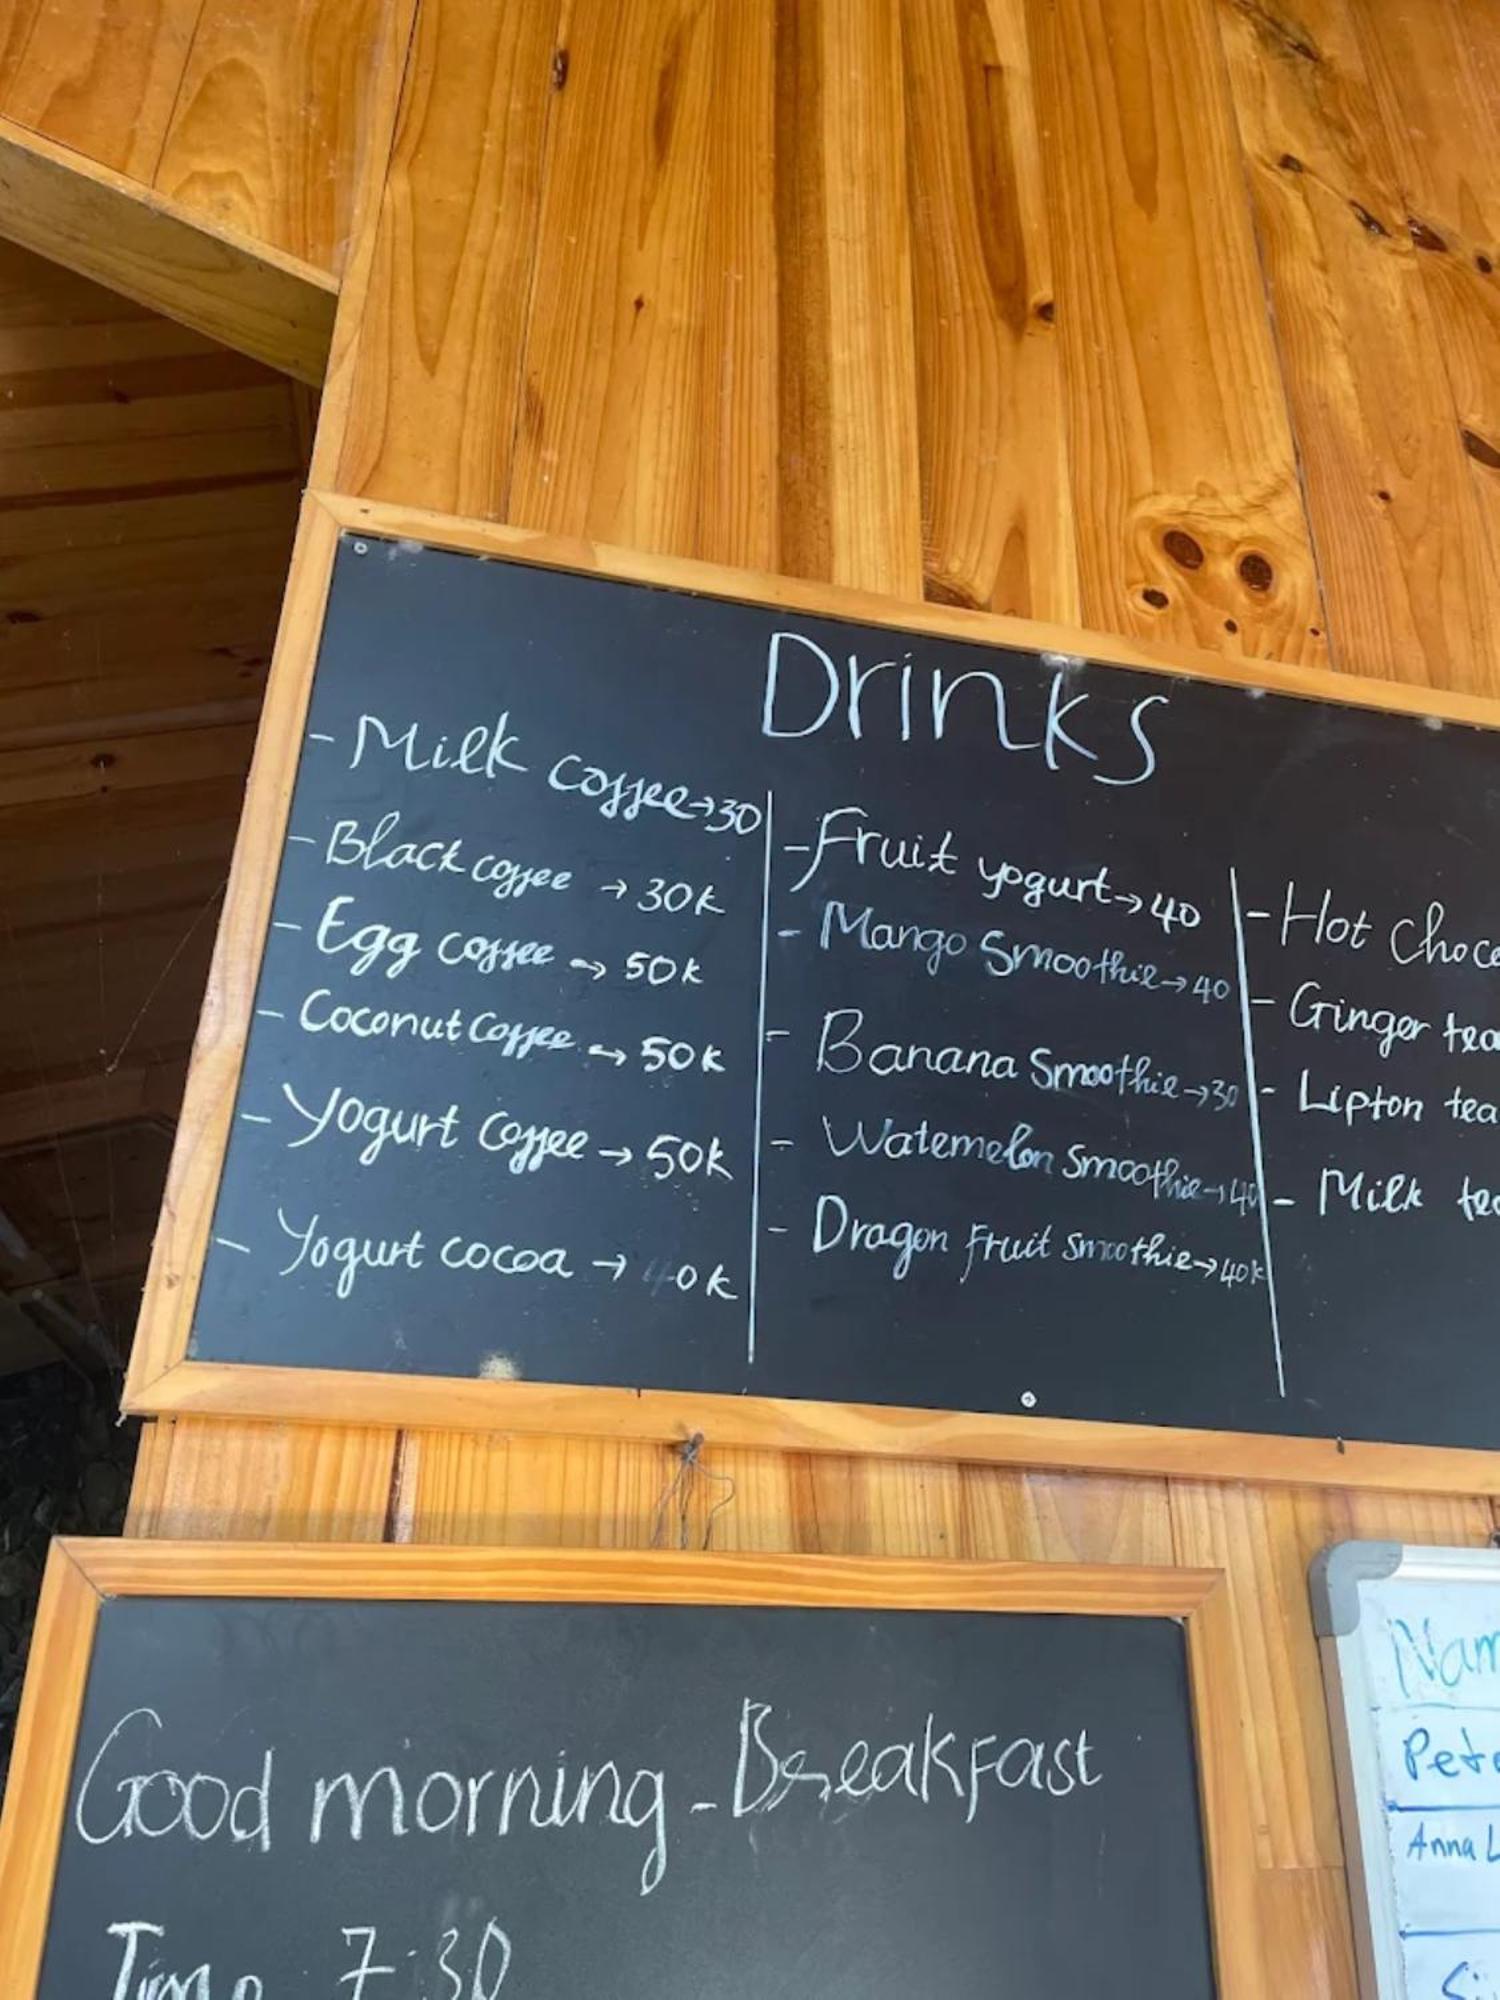 Drinks
- Milk coffee→30
- Black coffee → 30k
- Egg coffee → 50k
- Coconut Coffee → 50k
- Yogurt Coffee → 50k
- Yogurt cocoa → 40k
- Fruit yogurt→40
- Mango Smoothie→40
- Banana Smoothie→30
- Watemelon Smoothie→40
- Dragon Fruit Smoothie→40k
- Hot Choco
- Ginger tea
- Lipton tea
- Milk tea
Good morning - Breakfast
Time 7:30
Nam
Pete
Anna L